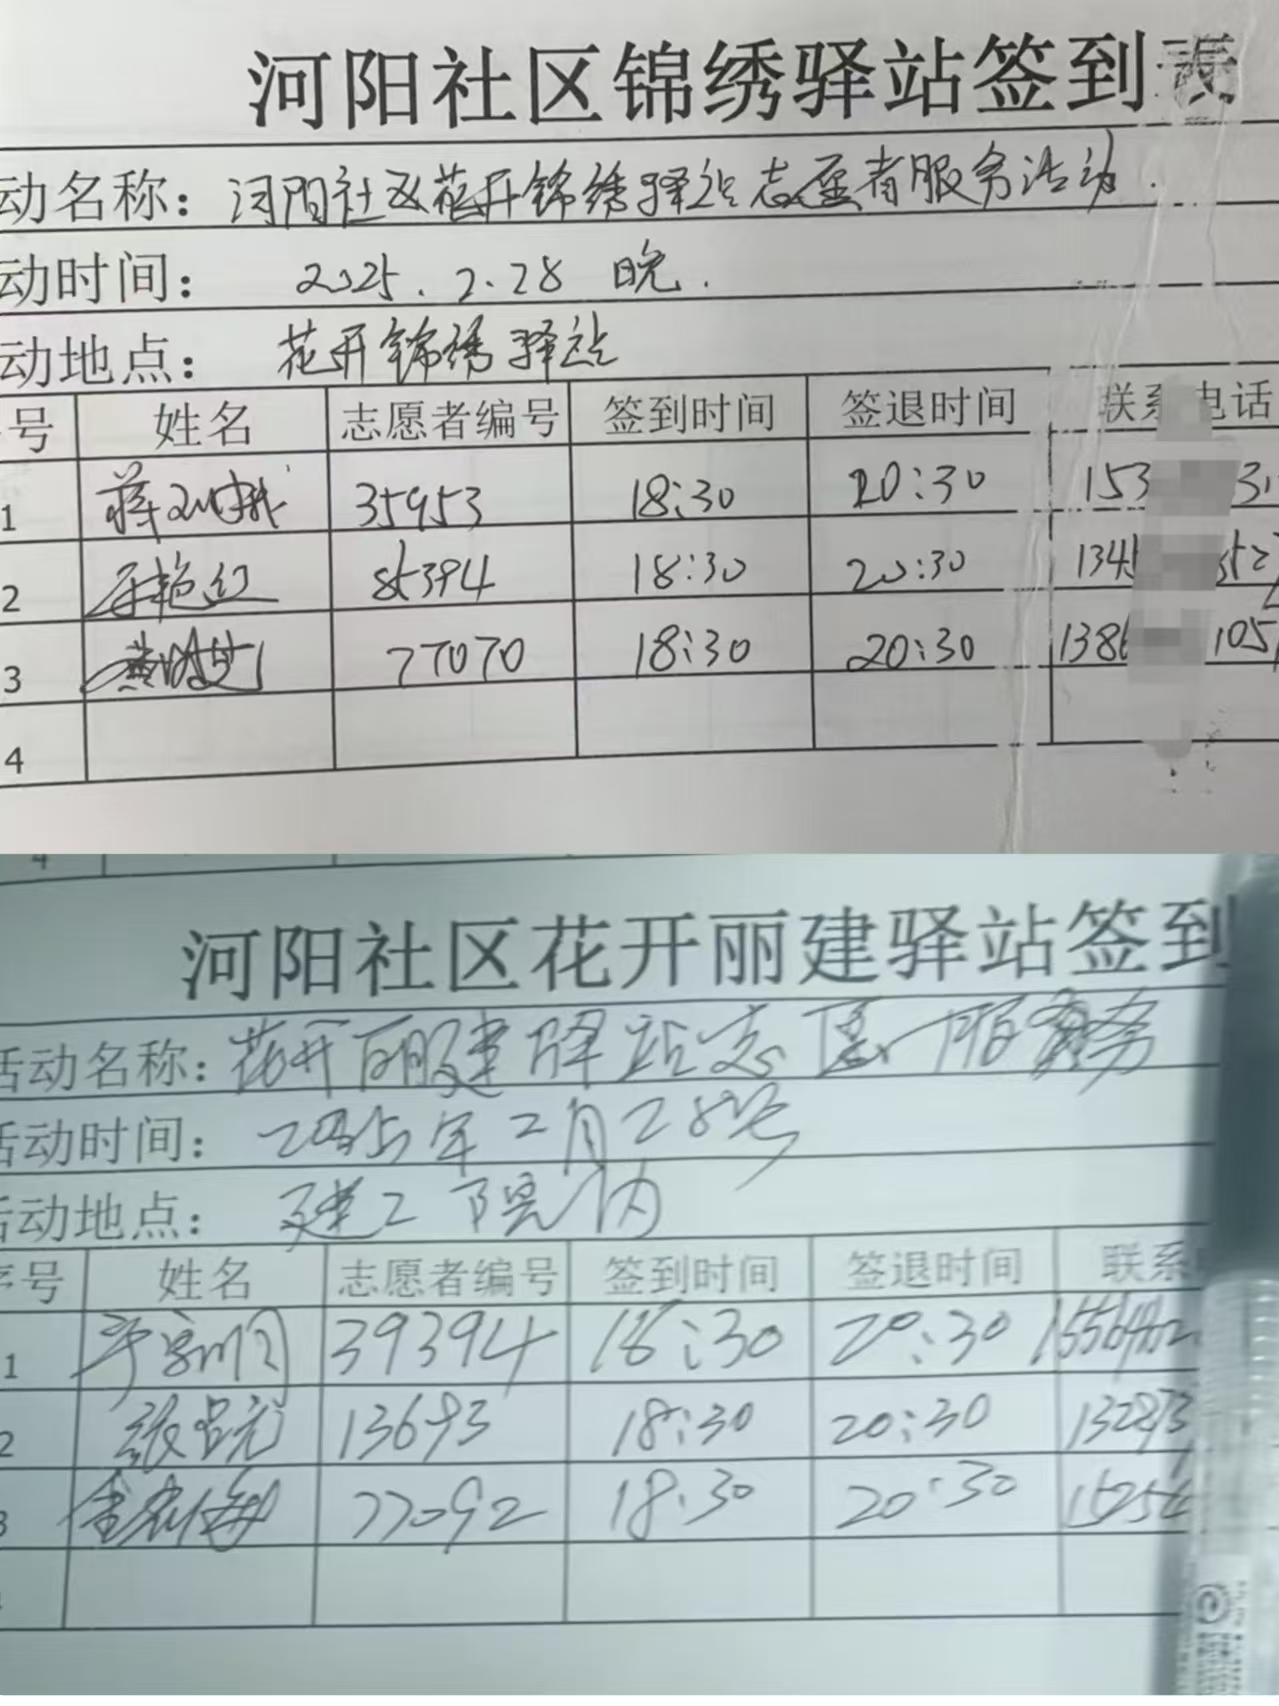 河阳社区锦绣驿站签到表
动名称：河阳社区花开锦绣驿站志愿者服务活动.
动时间： 2025.2.28 晚.
动地点： 花开锦绣驿站
号 姓名 志愿者编号 签到时间 签退时间 联系电话
1 35953 18:30 20:30 153
2 85394 18:30 20:30 134
3 77070 18:30 20:30 138 105
4
4
河阳社区花开丽建驿站签到
活动名称：花开丽建驿站志愿服务
活动时间： 2025年2月28号
活动地点： 建工院内
序号 姓名 志愿者编号 签到时间 签退时间 联系
1 39394 18:30 20:30
2 13693 18:30 20:30 13287
3 77092 18:30 20:30 15254